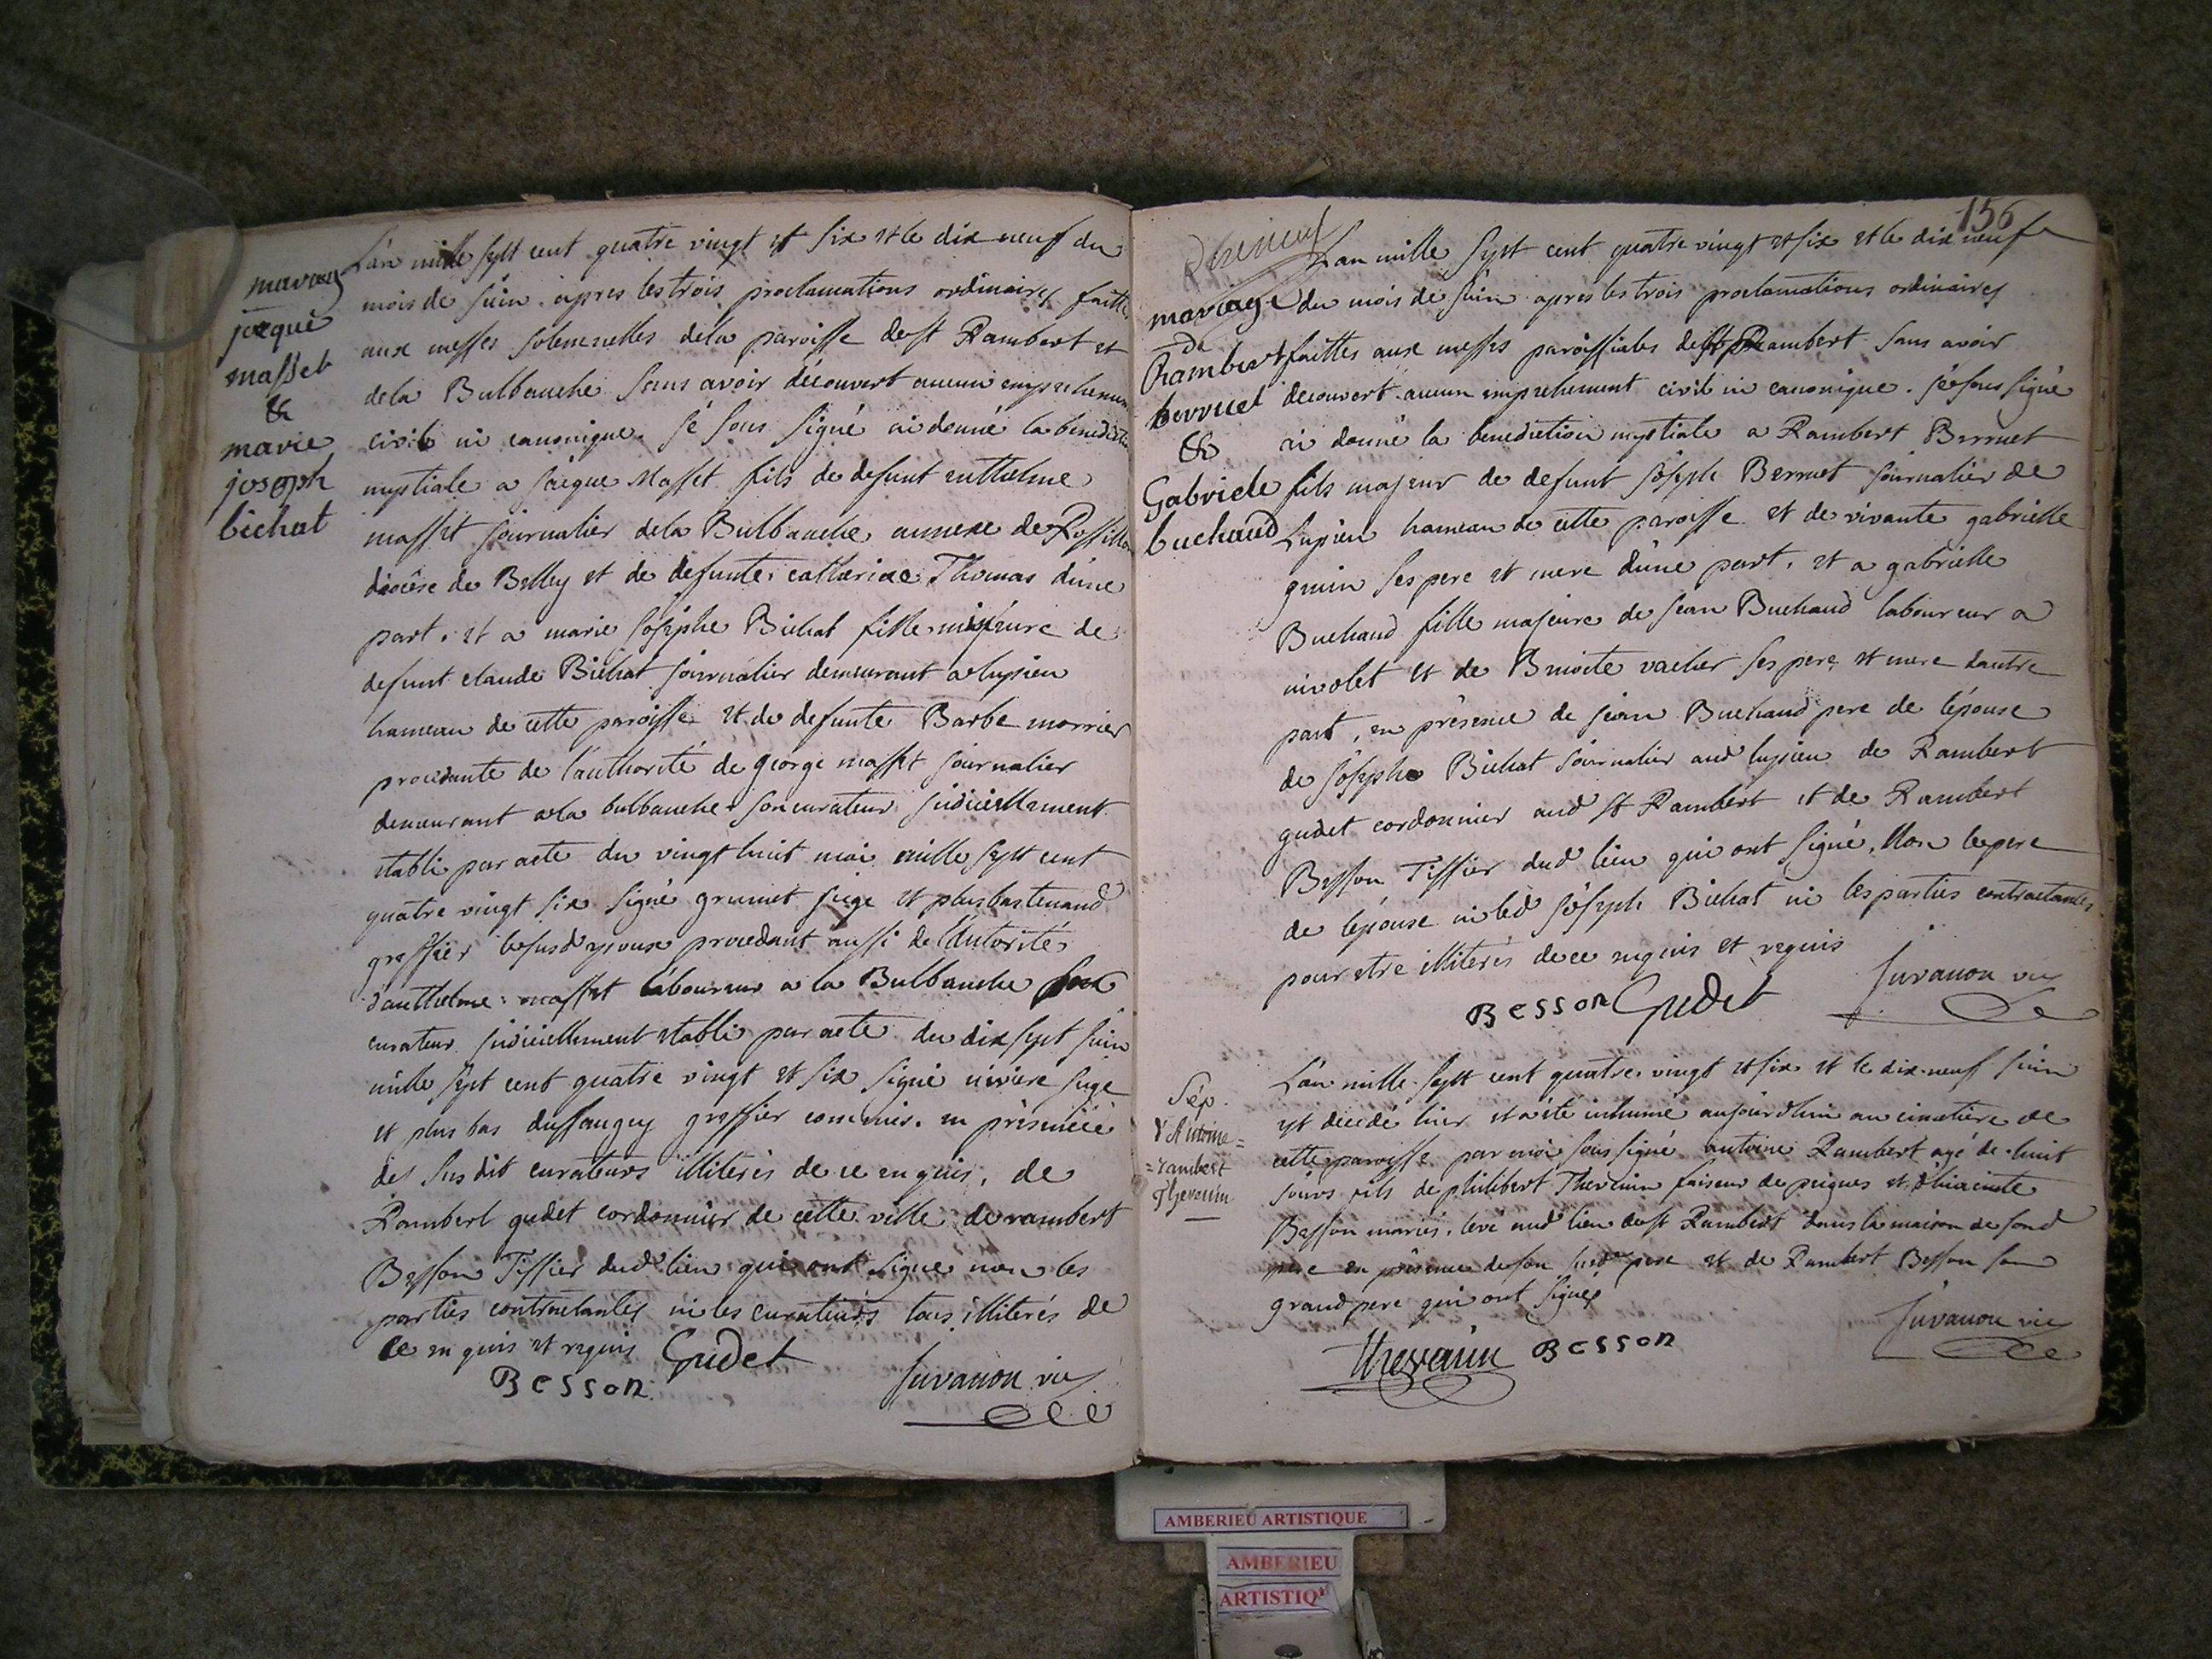 mariag
jacque
masset
&
marie
joseph
bichat
L'an mille sept cent quatre vingt et six et le dix neuf du
mois de juin apres les trois proclamations ordinaires faittes
aux messes solemnelles dela paroisse de st Rambert et
dela Bulbanche sans avoir découvert aucun empechement
civil ni canonique. je sous signé ai donné la benediction
nuptiale a jacque Masset fils de defunt enthelme
masset journalier dela Bulbanche annexe de Rossillon
diocèse de Belley et de defunte catharine Thomas d'une
part. et a marie josephe Bichat fille mineure de
defunt claude Bichat journalier demeurant a lupieu
hameau de cette paroisse et de defunte Barbe morrier
procedante de l'authorité de george masset journalier
demeurant a la bulbanche son curateur judiciellement
etabli par acte du vingt huit mai mille sept cent
quatre vingt six signé grumet juge et plus bas tenand
greffier le susd epoux procedant aussi de l'autorité
d'anthelme masset laboureur a la Bulbanche son
curateur judiciellement etabli par acte du dix sept juin
mille sept cent quatre vingt et six signé niviere juge
et plus bas dussaugey greffier commis. en présence
des susdit curateurs illiterés de ce enquis, de
Rambert gudet cordonnier de cette ville de rambert
Besson Tissier dud lieu qui ont signé non les
parties contractantes ni les curateurs tous illiterés de
ce enquis et requis Gudet
Besson Juvanon vic
156
dixneuf
mariage
de
Rambert
berruet
&
Gabriele
buchaud
L'an mille sept cent quatre vingt et six et le dix neuf
du mois de juin apres les trois proclamations ordinaires
faittes aux messes paroissiales de st Rambert sans avoir
decouvert aucun empechement civil ni canonique. je sous signé
ai donné la benediction nuptiale a Rambert Berruet
fils majeur de defunt joseph Berruet journalier de
Lupieu hameau de cette paroisse et de vivante gabrielle
ses pere et mere d'une part, et a gabrielle
Buchaud fille majeure de jean Buchaud laboureur a
nivolet et de Benoite vacher ses pere et mere dautre
part, en présence de jean Buchaud pere de l'épouse
de josephe Bichat journalier aud lupieu de Rambert
gudet cordonnier aud st Rambert et de Rambert
Besson Tissier dud lieu qui ont signé, Non le pere
de l'épouse ni led joseph Bichat ni les parties contractantes
pour etre illiterés de ce enquis et requis
Besson Gudet Juvanon vic
Sép.
d'Antoine=
=rambert
Thevenin
L'an mille sept cent quatre vingt et six et le dix-neuf juin
est décédé hier et a été inhumé aujourdhui au cimetière de
cette paroisse par moi sous signé antoine Rambert agé de huit
jours fils de philibert Thevenin faiseur de peignes et d'hiacinte
Besson mariés. levé aud lieu de st Rambert dans la maison de sond
pere en présence de son susd pere et de Rambert Besson son
grand pere qui ont signés
Thevenin Besson Juvanon vic
AMBERIEU ARTISTIQUE
AMBERIEU
ARTISTIQ